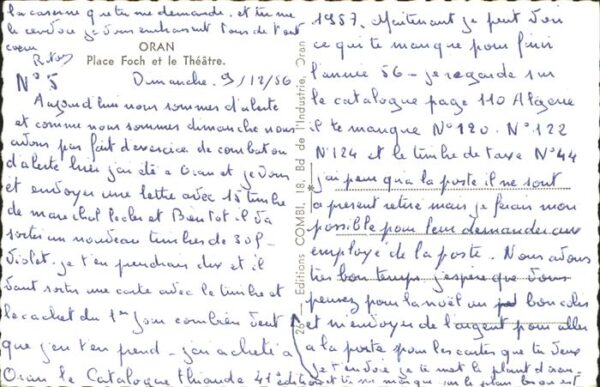 la caserne que tu me demande. et tu me
le renvoie je vous embrassent tous de tout
cœur
ORAN
Place Foch et le Théâtre.
N° 5
Dimanche. 9/12/56
Aujourd'hui nous sommes d'alerte
et comme nous sommes dimanche nous
avons pas fait d'exercice de combat ou
d'alerte hier j'ai été a Oran et je vous
et envoyer une lettre avec 15 timbre
de marechal Leclerc et Bentot il va
sortir un nouveau timbres de 30F.
violet. je t'en prendrais dux et il
vaut sortir une carte avec le timbre et
le cachet du 1er Jour combien veut
que j'en t'en prend - j'an acheté a
Oran le Catalogue thiaude 41e édition
26 — Editions COMBI, 18, Bd de l'Industrie, Oran
1957. Maintenant je peut
ce qui te manque pour finir
l'année 56 - je regarde sur
le catalogue page 110 Algerie
il te manque N° 120. N° 122
N° 124 et le timbre de taxe N° 44
j'ai peur qu'a la poste il ne sont
a present retiré mais je ferais mon
possible pour leur demander aux
employe de la poste. Nous avons
très bon temps j'espère que vous
pensez pour la noël un bon colis
et m'envoyer de l'argent pour aller
a la poste pour les cartes que tu veux
je t'envoie je te met la plant d'oran
et tu me marque sur le plan